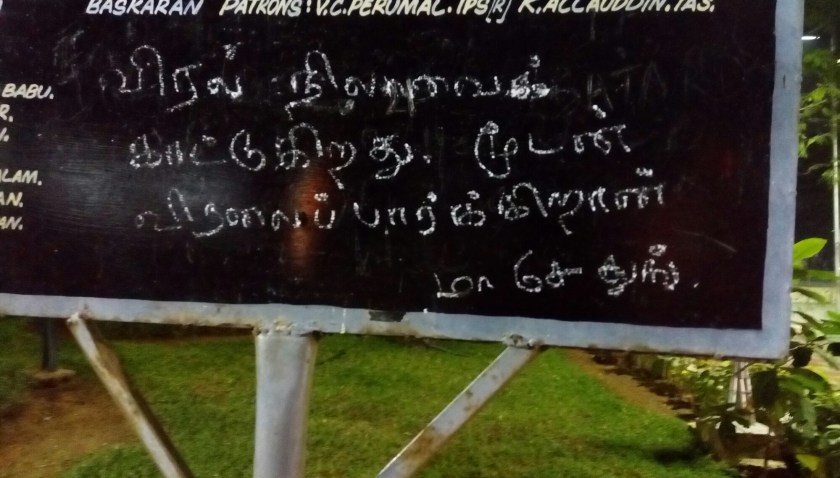 BASKARAN PATRONS: V.C. PERUMAL. IPS[R] K. ALLAUDDIN. IAS.
BABU.
R.
ALAM.
AN.
AN.
விரல் நிலவைக்
காட்டுகிறது. மூடன்
விரலைப் பார்க்கிறான்
மா சே துங்.